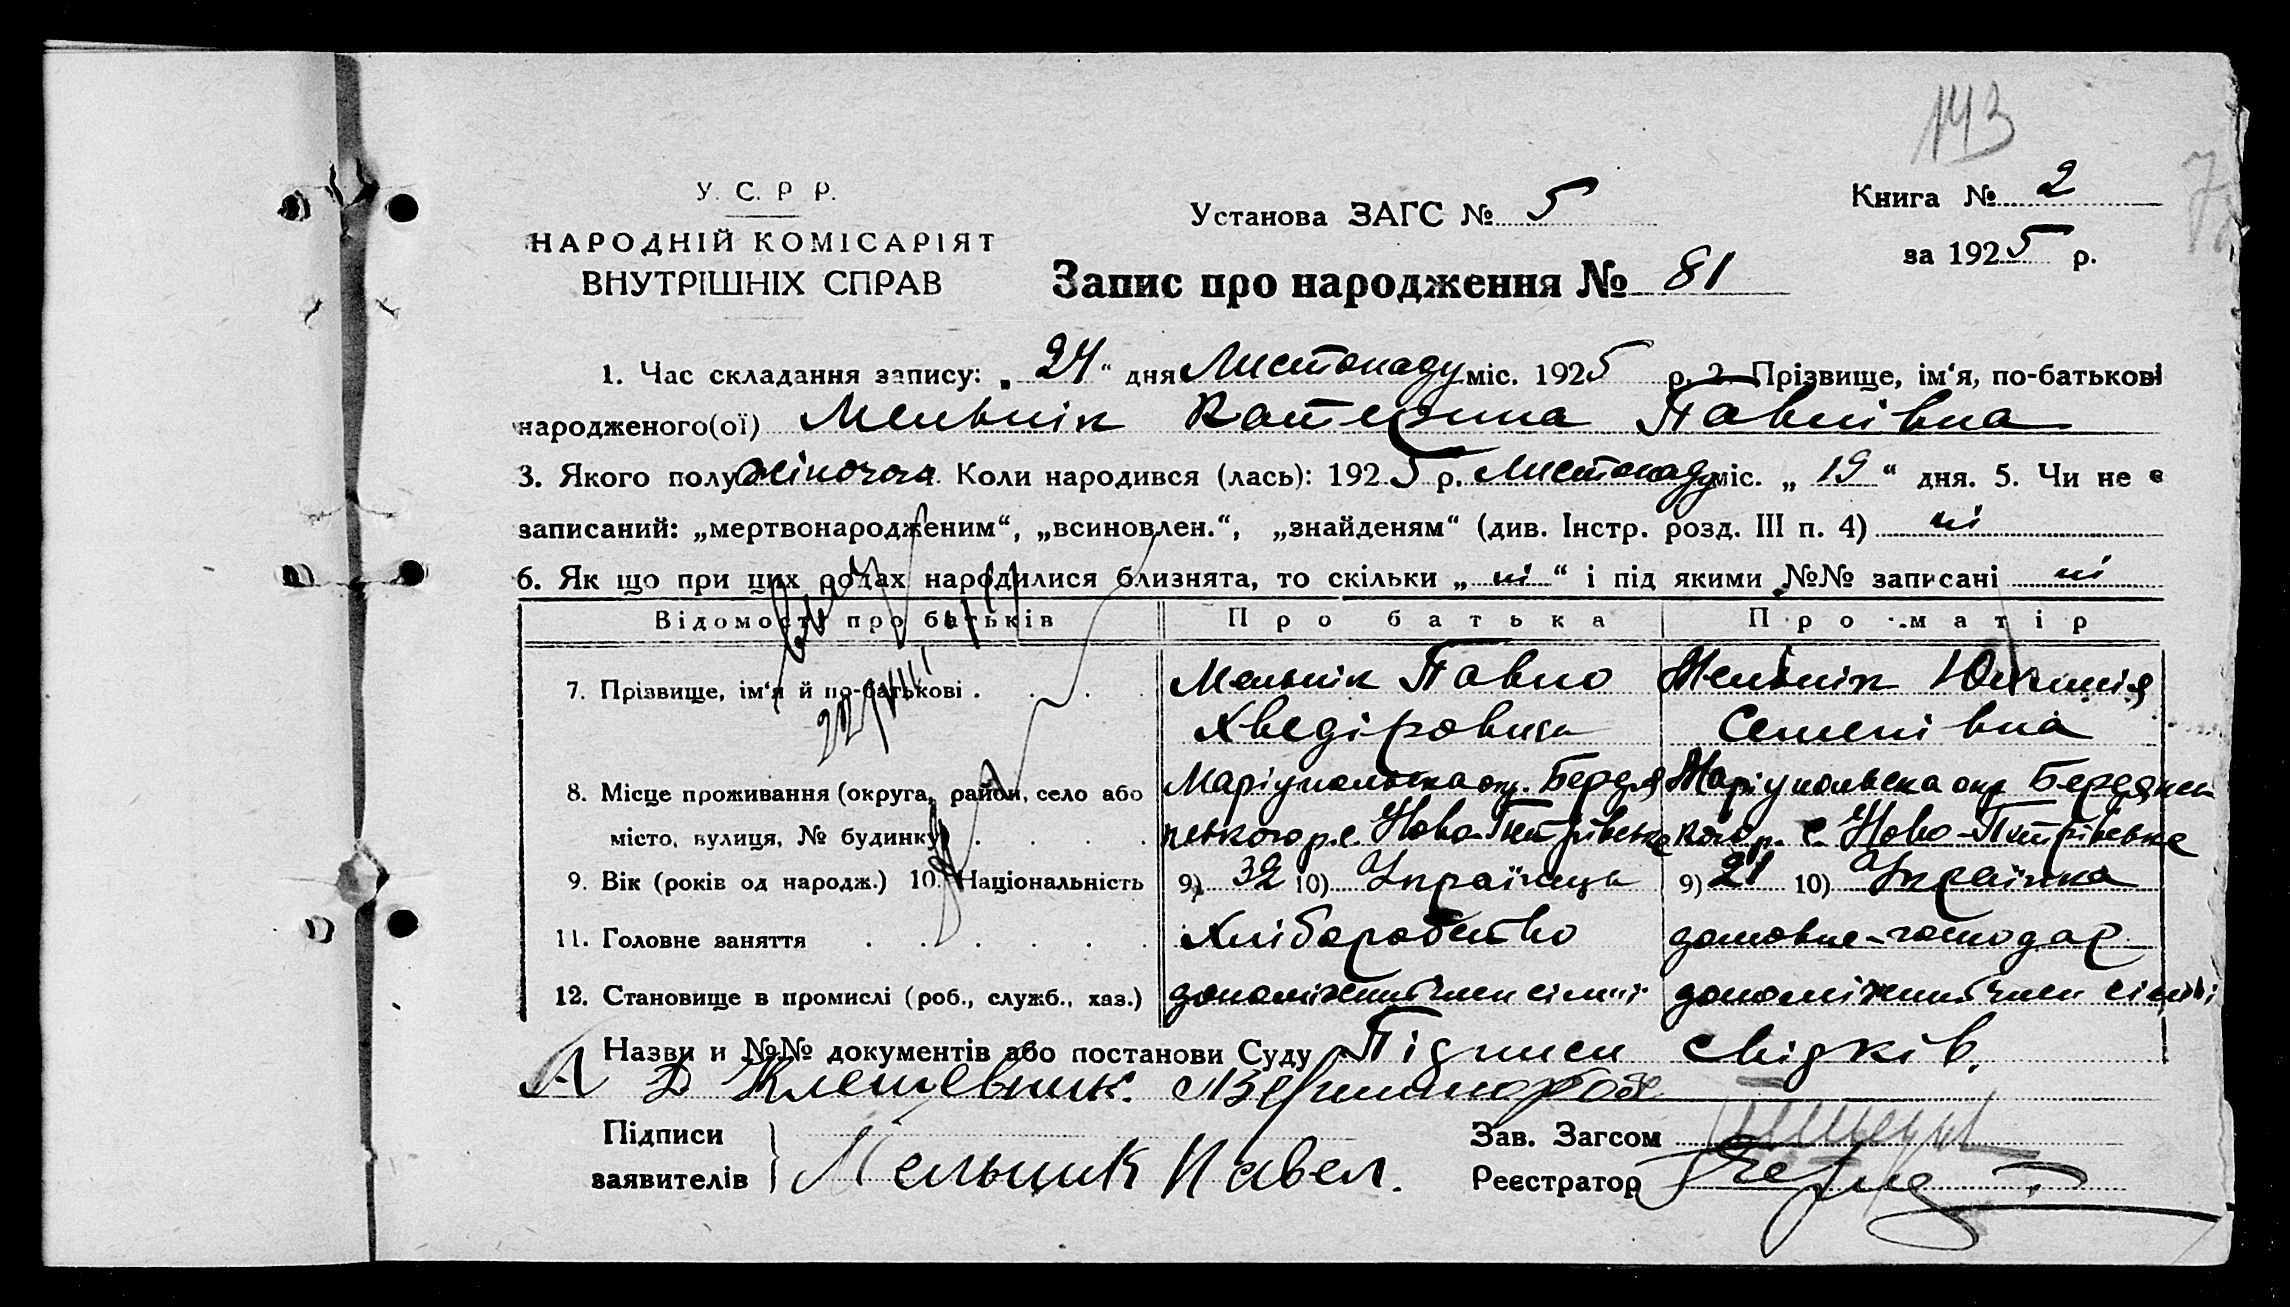 143
У. С. Р Р.
НАРОДНІЙ КОМІСАРІЯТ
ВНУТРІШНІХ СПРАВ
Установа ЗАГС № 5
Книга № 2
за 1925 р.
Запис про народження № 81
1. Час складання запису: „ 24 “ дня Листопаду міс. 1925 р. 2. Прізвище, ім‘я, по-батькові
народженого(ої) Мельнік Катерина Павлівна
3. Якого полу жіночого. Коли народився (лась): 1925 р. Листопаду міс. „ 19 “ дня. 5. Чи не є
записаний: „мертвонародженим“, „всиновлен.“, „знайденям“ (див. Інстр. розд. III п. 4) ні
6. Як що при цих родах народилися близнята, то скільки „ ні “ і під якими №№ записані ні
Відомості про батьків Про батька Про матір
7. Прізвище, ім‘я й по-батькові . . . . Мельнік Павло Мельнік
Хведірович Семенівна
8. Місце проживання (округа, район, село або Маріупольска окр. Бердя Маріупольска окр Бердянсь
місто, вулиця, № будинку) . . . . нського р. с. Ново-Петрівське кого р. с. Ново-Петрівське
9. Вік (років од народж.) 10. Національність 9) 32 10) Українець 9) 21 10) Українка
11. Головне заняття . . . . . . Хліборобство домовне-господар
12. Становище в промислі (роб., служб., хаз.) допоміжний член сімьї допоміжний член сімьї
Назви и №№ документів або постанови Суду Підписи свідків.
А Д
Підписи
заявителів } Мельник Павел.
Зав. Загсом
Реєстратор